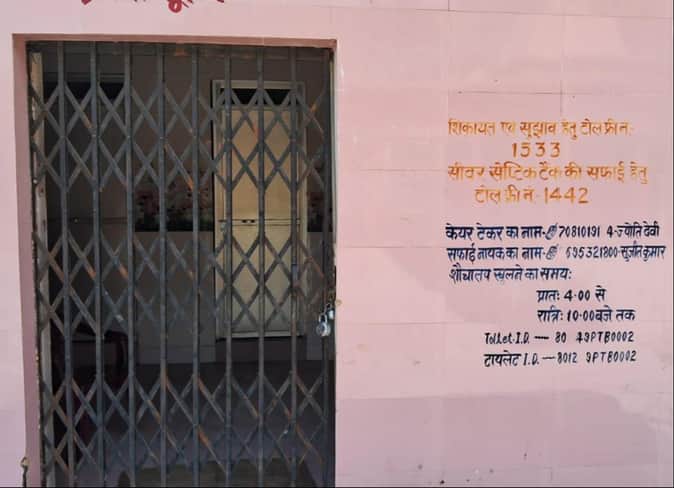 शिकायत एवं सुझाव हेतु टोल फ्री नं:-
1533
सीवर सेप्टिक टैंक की सफाई हेतु
टोल फ्री नं:-1442
केयर टेकर का नाम- 70810191 4-ज्योति देवी
सफाई नायक का नाम- 695321800-सुजीत कुमार
शौचालय खुलने का समय:
प्रातः 4.00 से
रात्रिः 10.00 बजे तक
Toilet.I.D ---- 80 49PTB0002
टायलेट I.D.-8012 9PTB0002